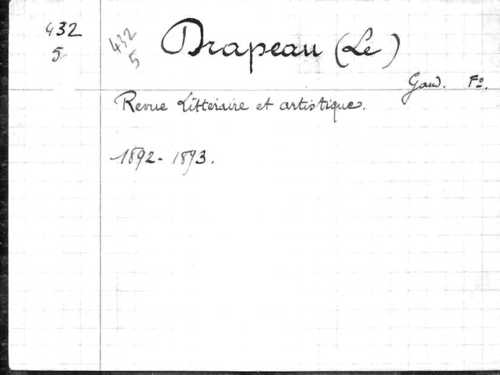 432
5
432
5
Drapeau (Le)
Gand. Fº.
Revue Littéraire et artistique.
1892-1893.